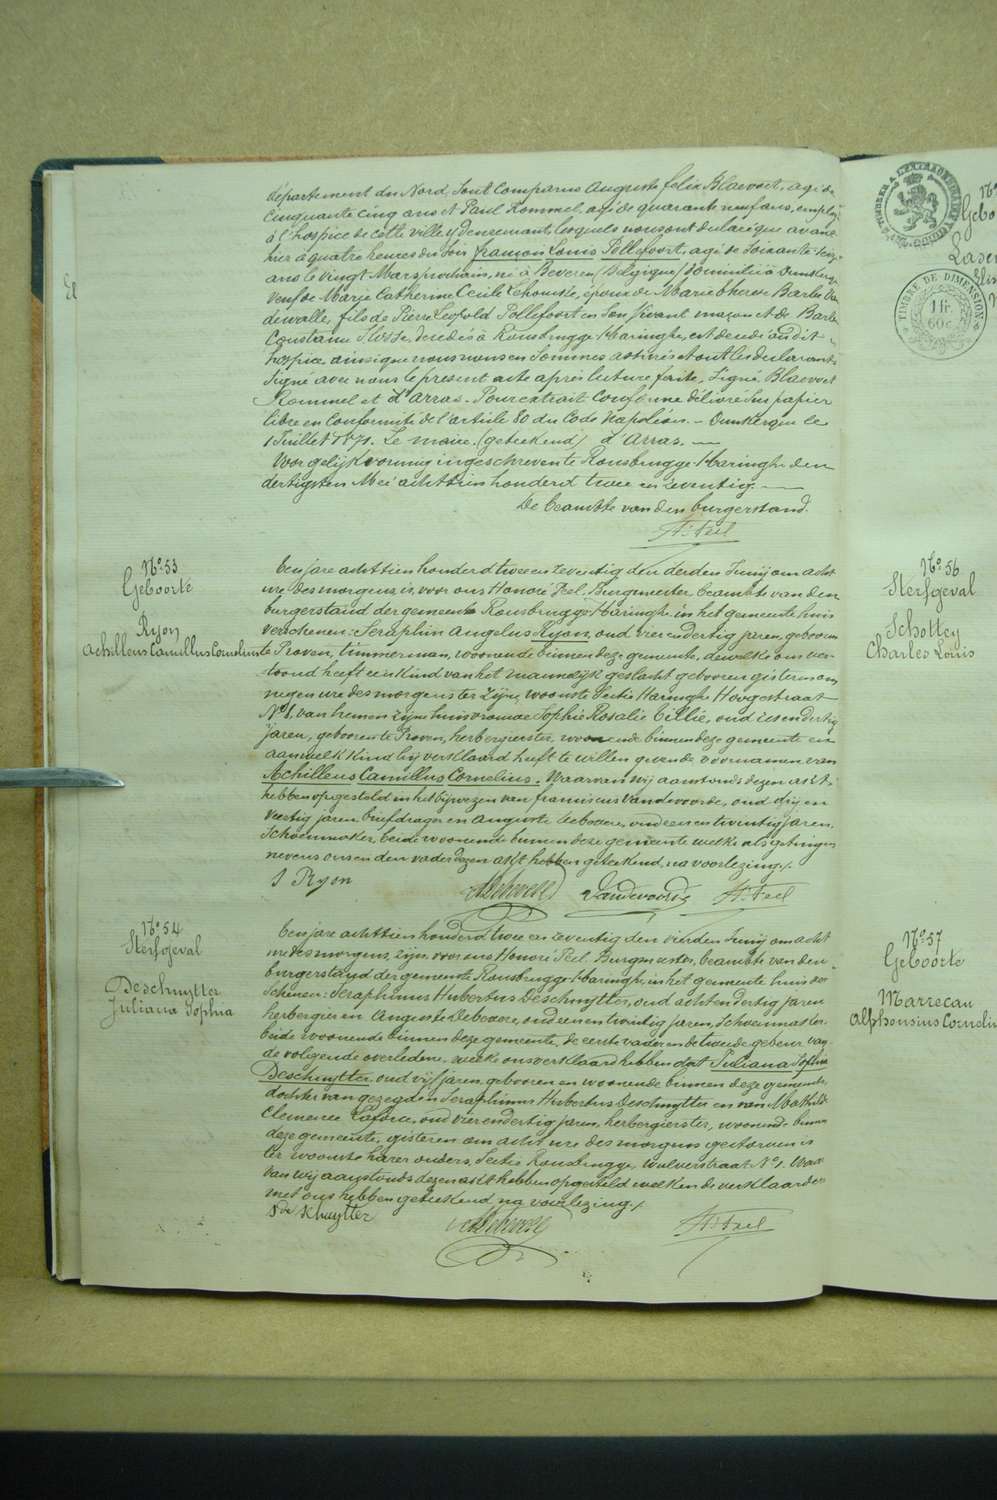 département du Nord sont comparus Auguste felix Blaevoet, agé de
cinquante cinq ans et Paul Rommel, agé de quarante neuf ans, employés
à l'hospice de cette ville y demeurant, lesquels nous ont declaré que avant
hier à quatre heures du soir françois Louis Pollefoort, agé de soixante seize
ans le vingt Mars prochain, né à Beveren (Belgique) domicilié à Dunkerque
veuf de Marie Catherine Cecile Lehoucke, époux de Marie therese Barbe Van
dewalle, fils de Pierre Leopold Pollefoort en son vivant maçon et de Barbe
Constance decedés à Rousbrugge-Haringhe, est decedé au dit
hospice, ainsi que nous nous en sommes assurés et ont les declarants
signé avec nous le present acte après lecture faite, Signé Blaevoet
Rommel et d'Arras. Pour extrait conforme délivré sur papier
libre en conformité de l'article 80 du Code Napoléon. - Dunkerque le
1 Juillet 1871. Le maire. (geteekend) d'Arras. —
Voor gelijkvormig ingeschreven te Rousbrugge-Haringhe den
dertigsten Mei achttien honderd twee en zeventig. —
De beambte van den burgerstand.
H: Feel
No 53
Geboorte
Ryon
Achilleus Camillus Cornelius
Een jare achttien honderd twee en zeventig den derden Junij om acht
ure des morgens is voor ons Honoré Feel, Burgmeester beambte van den
burgerstand der gemeente Rousbrugge-Haringhe in het gemeente huis
verschenen: Seraphin Angelus Ryon, oud vier en dertig jaren, gebooren
te Proven, timmerman, woonende binnen deze gemeente, dewelke ons ver-
toond heeft een kind van het mannelijk geslacht gebooren gisteren om
negen ure des morgens ter zijne woonste Sectie Haringhe Hoogestraat
No 1, van hem en zijne huisvrouwe Sophie Rosalie Cillie, oud zes en dertig
jaren, geboren te Proven, herbergierster, woonende binnen deze gemeente en
aan welk kind hij verklaard heeft te willen geven de voornamen van
Achilleus Camillus Cornelius. Waarvan wij aanstonds dezen akt
hebben opgesteld in het bijwezen van franciscus Vandevoorde, oud drij en
veertig jaren, briefdrager en Auguste Debevere, oud een en twintig jaren,
Schoenmaker, beide woonende binnen deze gemeente welke als getuigen
nevens ons en den vader dezen akt hebben geteekend, na voorlezing./.
S Ryon
Vandevoorde
H: Feel
No 54
Sterfgeval
Deschuytter
Juliana Sophia
Een jare achttien honderd twee en zeventig den vierden Junij om acht
ure des morgens, zijn voor ons Honoré Feel, Burgmeester, beambte van den
burgerstand der gemeente Rousbrugge-Haringhe, in het gemeente huis ver
schenen: Seraphinus Hubertus Deschuytter, oud acht en dertig jaren
herbergier en Auguste Debevere, oud een en twintig jaren, Schoenmaker
beide woonende binnen deze gemeente, de eerste vader en de tweede gebeur van
de volgende overledene, welke ons verklaard hebben dat Juliana Sophia
Deschuytter, oud vijf jaren, gebooren en woonende binnen deze gemeente,
dochter van gezegden Seraphinus Hubertus Deschuytter en van Mathilde
Clemence Lafore, oud vier en dertig jaren, herbergierster, woonende binnen
deze gemeente, gisteren om acht ure des morgens gestorven is
ter woonste harer ouders, Sectie Rousbrugge, wulverstraat No 1. Waar
van wij aanstonds dezen akt hebben opgesteld welken de verklaarders
met ons hebben geteekend, na voorlezing./.
H: Feel
TIMBRE DE DIMENSION
1 fr.
60 c.
No 56
Sterfgeval
Schottey
Charles Louis
No 57
Geboorte
Marrecau
Alphonsius Cornelius